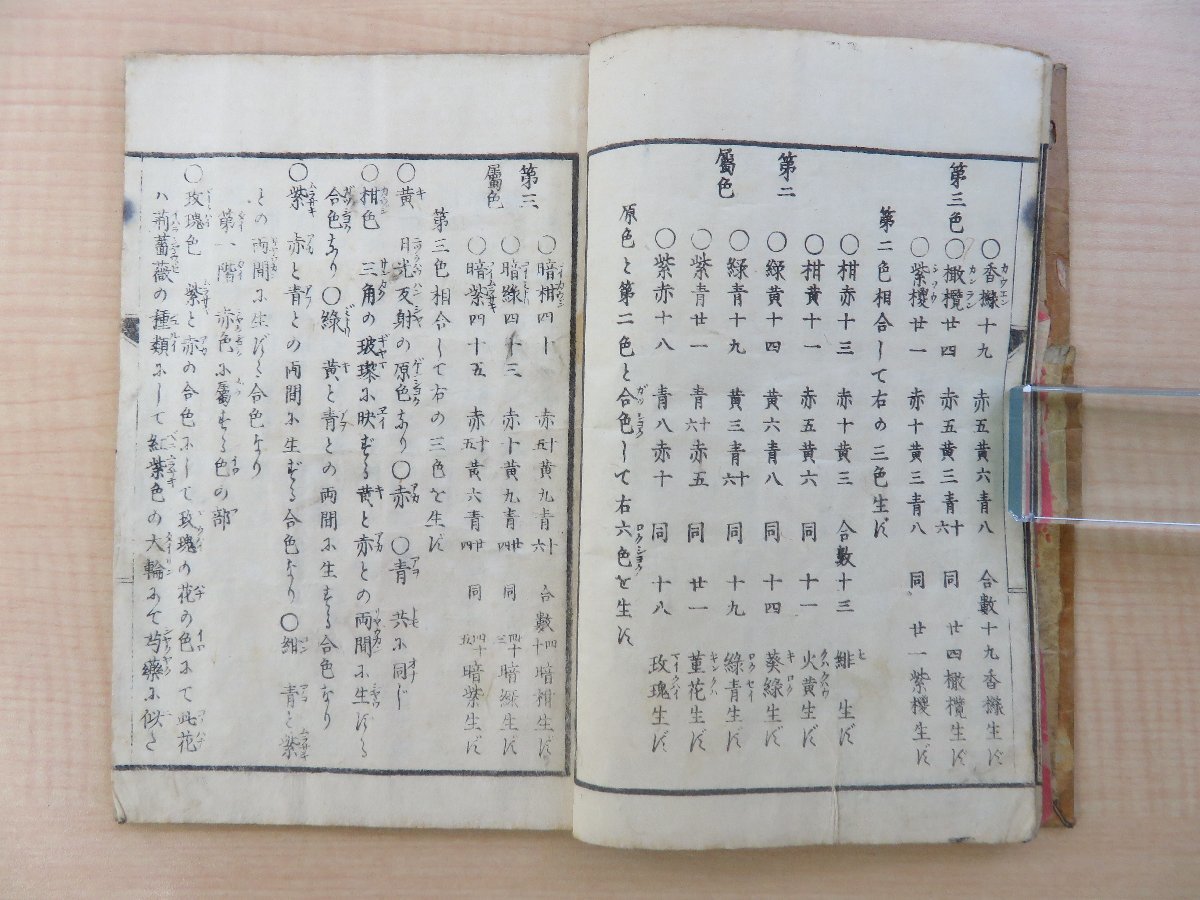 ○香櫞十九 赤五黄六青八 合數十九香櫞生ズ
第三色○橄欖廿四 赤五黄三青十六 同 廿四橄欖生ズ
○紫㯶廿一 赤十黄三青八 同 廿一紫㯶生ズ
第二色相合して右の三色生ズ
○柑赤十三 赤十黄三 合數十三 緋生ズ
○柑黄十一 赤五黄六 同 十一 火黄生ズ
第二 ○緑黄十四 黄六青八 同 十四 葵緑生ズ
○緑青十九 黄三青十六 同 十九 緑青生ズ
屬色 ○紫青廿一 青十六赤五 同 廿一 菫花生ズ
○紫赤十八 青八赤十 同 十八 玫瑰生ズ
原色と第二色と合色して右六色を生ズ
○暗柑四十 赤十五黄九青十六 合數四十暗柑生ズ
第三 ○暗緑四十三 赤十黄九青廿四 同 四十三暗緑生ズ
屬色 ○暗紫四十五 赤十五黄六青廿四 同 四十五暗紫生ズ
第三色相合して右の三色を生ズ
○黄 日光反射の原色なり○赤 ○青 共に同じ
○柑色 三角の玻瓈に映ずる黄と赤との両間に生ずる
合色なり○緑 黄と青との両間に生ずる合色なり
○紫 赤と青との両間に生ずる合色なり○紺 青と紫
との両間に生ずる合色なり
第一階 赤色に屬する色の部
○玫瑰色 紫と赤の合色にして玫瑰の花の色にて此花
ハ荊薔薇の種類にして紅紫色の大輪にて芍藥に似て